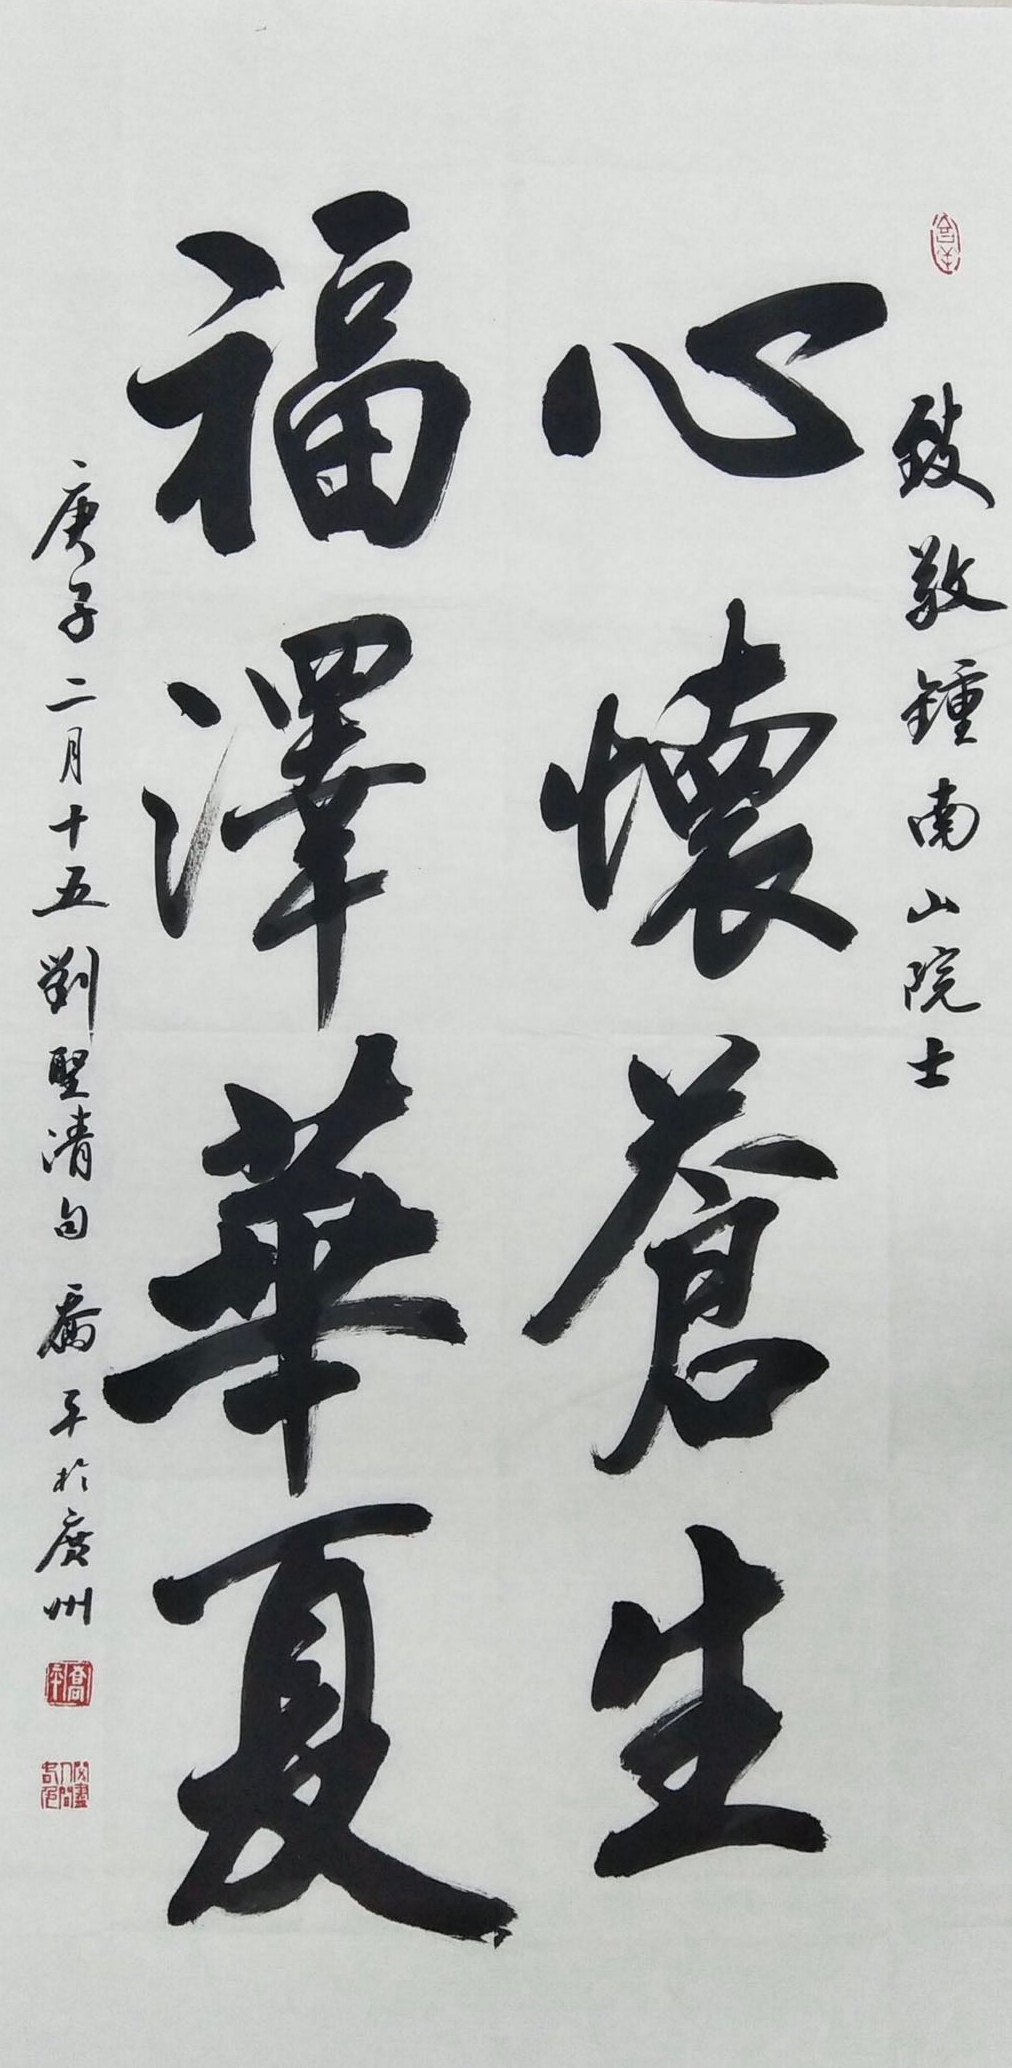 致敬鍾南山院士
心懷蒼生
福澤華夏
庚子二月十五劉聖清句喬平於廣州
喬平